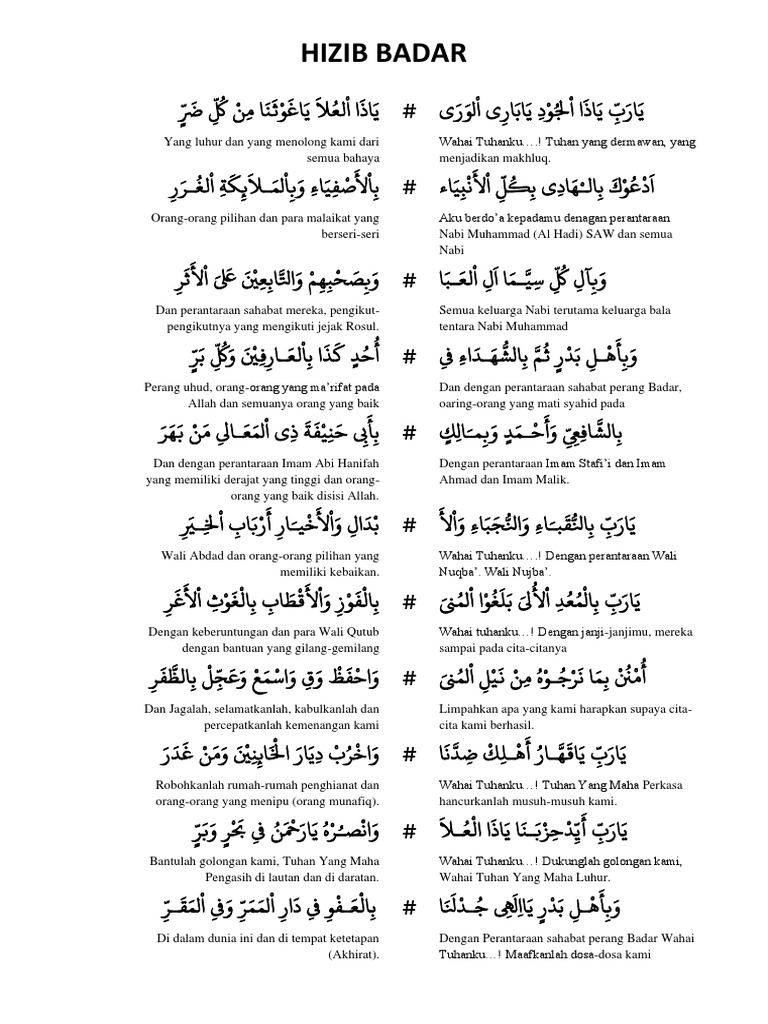 HIZIB BADAR
يَارَبِّ يَاذَا الْجُوْدِ يَابَارِى الْوَرَى # يَاذَا الْعُلاَ يَاغَوْثَنَا مِنْ كُلِّ ضَرٍّ
Wahai Tuhanku….! Tuhan yang dermawan, yang
menjadikan makhluq.
Yang luhur dan yang menolong kami dari
semua bahaya
اَدْعُوْكَ بِالْهَادِى بِكُلِّ الْأَنْبِيَاء # بِالْأَصْفِيَاءِ وَبِالْمَلاَئِكَةِ الْغُرَرِ
Aku berdo’a kepadamu denagan perantaraan
Nabi Muhammad (Al Hadi) SAW dan semua
Nabi
Orang-orang pilihan dan para malaikat yang
berseri-seri
وَبِآلِ كُلِّ سِيَّمَا اَلِ الْعَبَا # وَبِصَحْبِهِمْ وَالتَّابِعِيْنَ عَلَى الْأَثَرِ
Semua keluarga Nabi terutama keluarga bala
tentara Nabi Muhammad
Dan perantaraan sahabat mereka, pengikut-
pengikutnya yang mengikuti jejak Rosul.
وَبِأَهْلِ بَدْرٍ ثُمَّ بِالشُّهَدَاءِ فِي # أُحُدٍ كَذَا بِالْعَارِفِيْنَ وَكُلِّ بَرٍّ
Dan dengan perantaraan sahabat perang Badar,
oaring-orang yang mati syahid pada
Perang uhud, orang-orang yang ma’rifat pada
Allah dan semuanya orang yang baik
بِالشَّافِعِيِّ وَأَحْمَدٍ وَبِمَالِكٍ # بِأَبِى حَنِيْفَةَ ذِى الْمَعَالِي مَنْ بَهَرَ
Dengan perantaraan Imam Stafi’i dan Imam
Ahmad dan Imam Malik.
Dan dengan perantaraan Imam Abi Hanifah
yang memiliki derajat yang tinggi dan orang-
orang yang baik disisi Allah.
يَارَبِّ بِالنُّقَبَاءِ وَالنُّجَبَاءِ وَالْأَ # بْدَالِ وَالْأَخْيَارِ أَرْبَابِ الْخِيَرِ
Wahai Tuhanku….! Dengan perantaraan Wali
Nuqba’. Wali Nujba’.
Wali Abdad dan orang-orang pilihan yang
memiliki kebaikan.
يَارَبِّ بِالْمُعُدِ الْأُلىَ بَلَغُوْا الْمُنىَ # بِالْفَوْزِ وَالْأَقْطَابِ بِالْغَوْثِ الْأَغَرِ
Wahai tuhanku…! Dengan janji-janjimu, mereka
sampai pada cita-citanya
Dengan keberuntungan dan para Wali Qutub
dengan bantuan yang gilang-gemilang
أُمْنُنْ بِمَا نَرْجُوْهُ مِنْ نَيْلِ الْمُنىَ # وَاحْفَظْ وَقِ وَاسْمَعْ وَعَجِّلْ بِالظَّفَرِ
Limpahkan apa yang kami harapkan supaya cita-
cita kami berhasil.
Dan Jagalah, selamatkanlah, kabulkanlah dan
percepatkanlah kemenangan kami
يَارَبِّ يَاقَهَّارُ أَهْلِكْ ضِدَّنَا # وَاخْرُبْ دِيَارَ الْخَاىِٕنِيْنَ وَمَنْ غَدَرَ
Wahai Tuhanku…! Tuhan Yang Maha Perkasa
hancurkanlah musuh-musuh kami.
Robohkanlah rumah-rumah penghianat dan
orang-orang yang menipu (orang munafiq).
يَارَبِّ أَيِّدْحِزْبَنَا يَاذَا الْعُلاَ # وَانْصُرْهُ يَارَحْمَنُ فِي بَحْرٍ وَبَرٍّ
Wahai Tuhanku…! Dukunglah golongan kami,
Wahai Tuhan Yang Maha Luhur.
Bantulah golongan kami, Tuhan Yang Maha
Pengasih di lautan dan di daratan.
وَبِأَهْلِ بَدْرٍ يَاإِلَهِى جُدْلَنَا # بِالْعَفْوِ فِي دَارِ الْمَمَرِّ وَفِي الْمَقَرِّ
Dengan Perantaraan sahabat perang Badar Wahai
Tuhanku…! Maafkanlah dosa-dosa kami
Di dalam dunia ini dan di tempat ketetapan
(Akhirat).